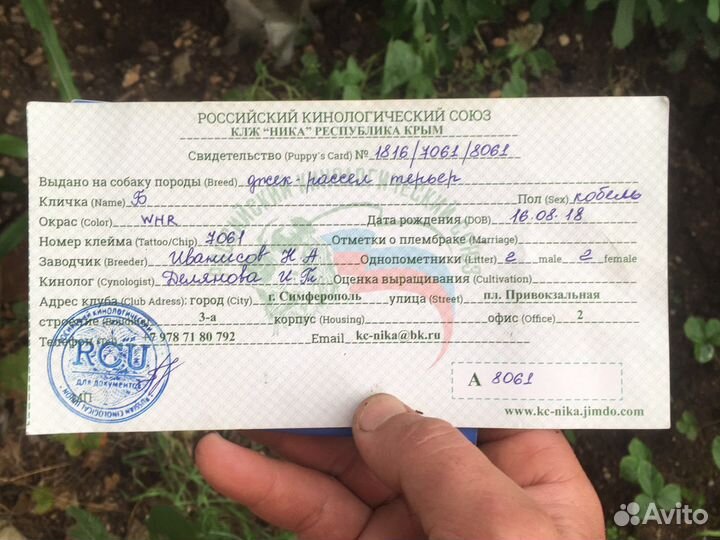 РОССИЙСКИЙ КИНОЛОГИЧЕСКИЙ СОЮЗ
КЛЖ "НИКА" РЕСПУБЛИКА КРЫМ
Свидетельство (Puppy's Card) № 1816/7061/8061
Выдано на собаку породы (Breed) джек-рассел терьер
Кличка (Name) Б Пол (Sex) кобель
Окрас (Color) WHR Дата рождения (DOB) 16.08.18
Номер клейма (Tattoo/Chip) 7061 Отметки о плембраке (Marriage)
Заводчик (Breeder) Иванисов Н А Однопометники (Litter) 2 male 2 female
Кинолог (Cynologist) Делянова И П Оценка выращивания (Cultivation)
Адрес клуба (Club Adress): город (City) г. Симферополь улица (Street) пл. Привокзальная
строение 3-а корпус (Housing) офис (Office) 2
Телефон +7 978 71 80 792 Email kc-nika@bk.ru
RCU
ДЛЯ ДОКУМЕНТОВ
RUSSIAN CYNOLOGICAL UNION
МП
А 8061
www.kc-nika.jimdo.com
Avito